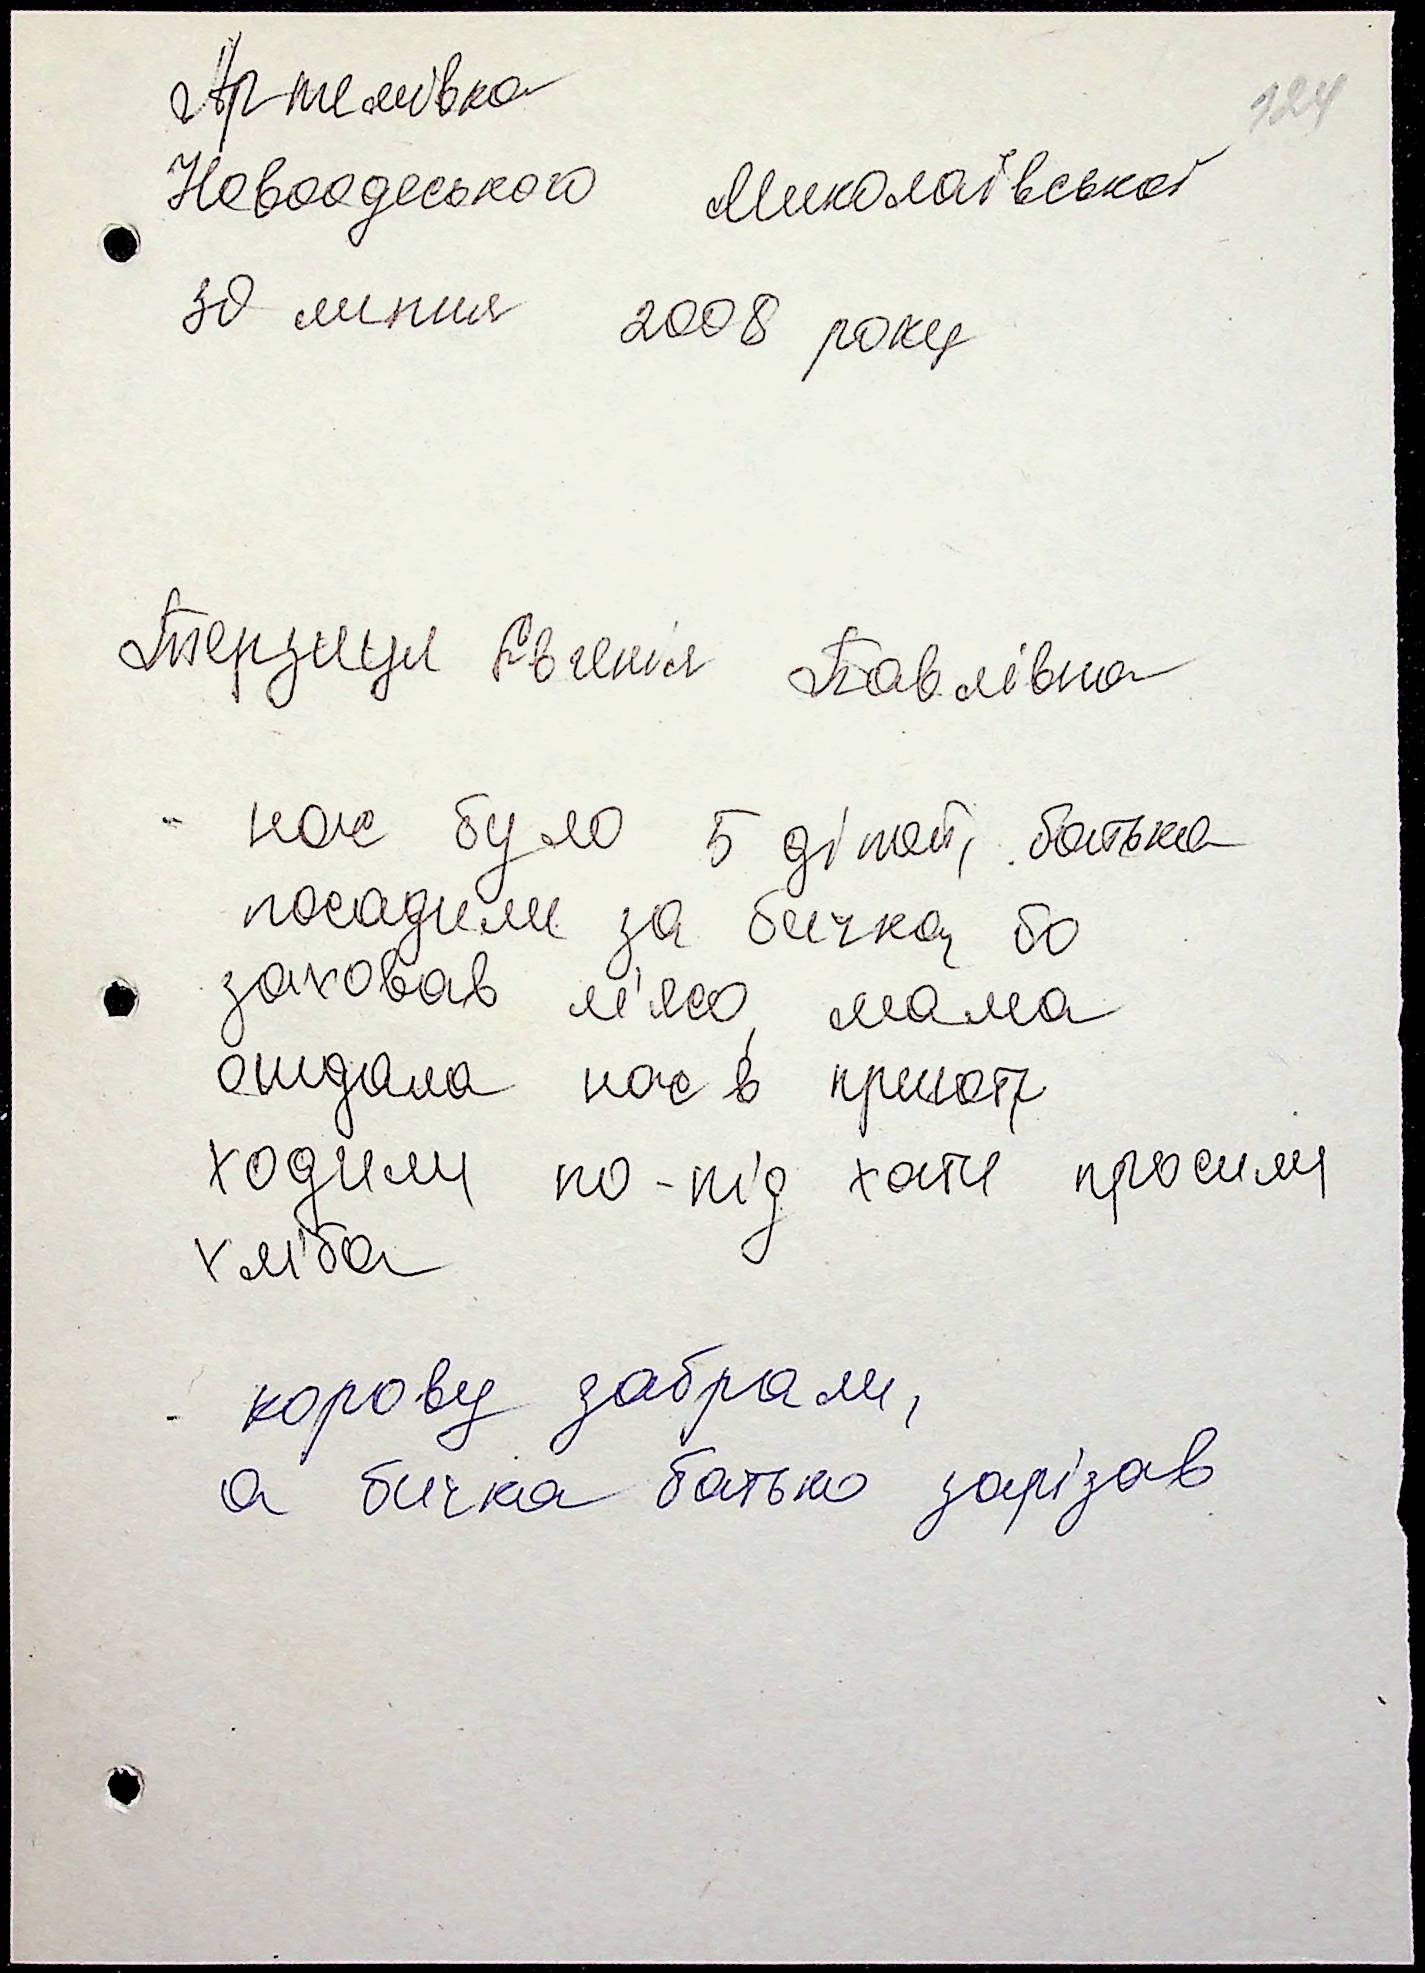 124
Артемівка
Новоодеського Миколаївської
30 липня 2008 року
Євгенія Павлівна
- нас було 5 дітей, батька
посадили за бичка, бо
заховав м'ясо, мама
оддала нас в приют
ходили по-під хати просили
хліба
- корову забрали,
а бичка батько зарізав